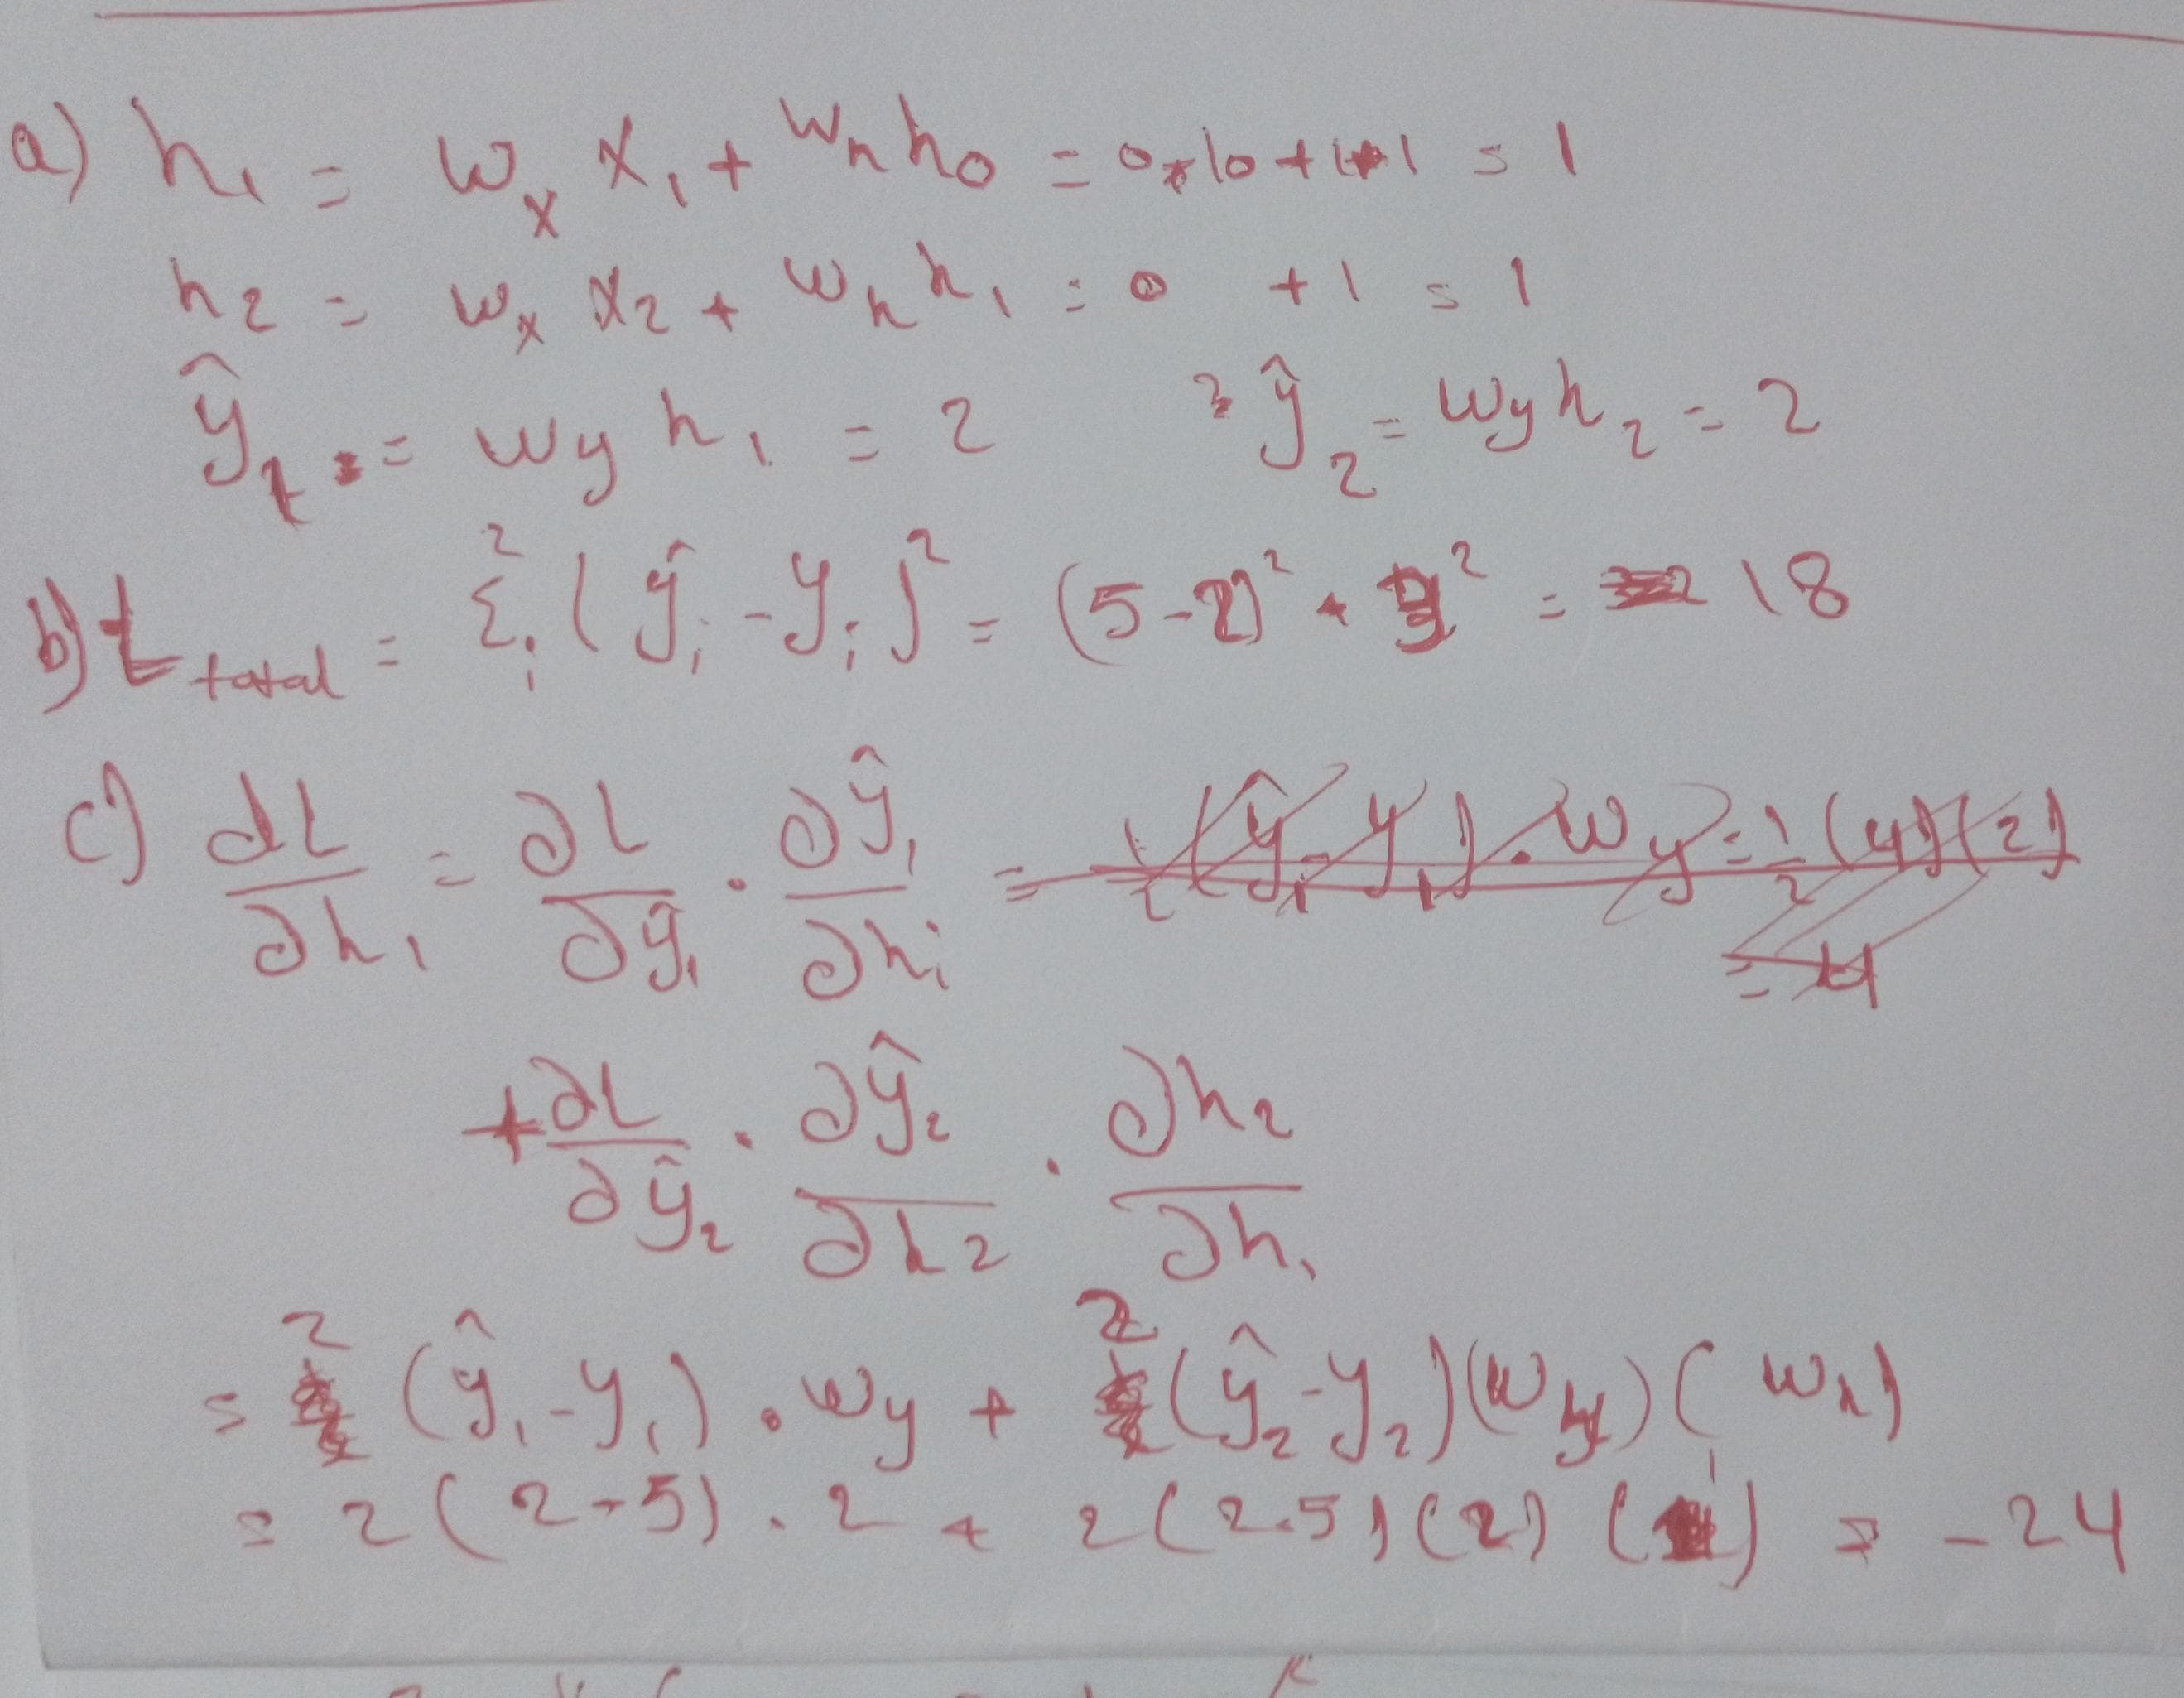 a) h₁ = wₓ x₁ + wₕ h₀ = 0*10 + 1*1 = 1
h₂ = wₓ x₂ + wₕ h₁ = 0 + 1 = 1
ŷ₁ = wy h₁ = 2 ŷ₂ = wy h₂ = 2
b) L total = Σᵢ² (ŷᵢ - yᵢ)² = (5-2)² + 3² = 18
c) dL/∂h₁ = ∂L/∂ŷ₁ · ∂ŷ₁/∂h₁ =
+ ∂L/∂ŷ₂ · ∂ŷ₂/∂h₂ · ∂h₂/∂h₁
= 2 (ŷ₁ - y₁) · wy + 2 (ŷ₂ - y₂)(wy)(wₕ)
= 2 (2-5) · 2 + 2 (2-5)(2)(1) = -24